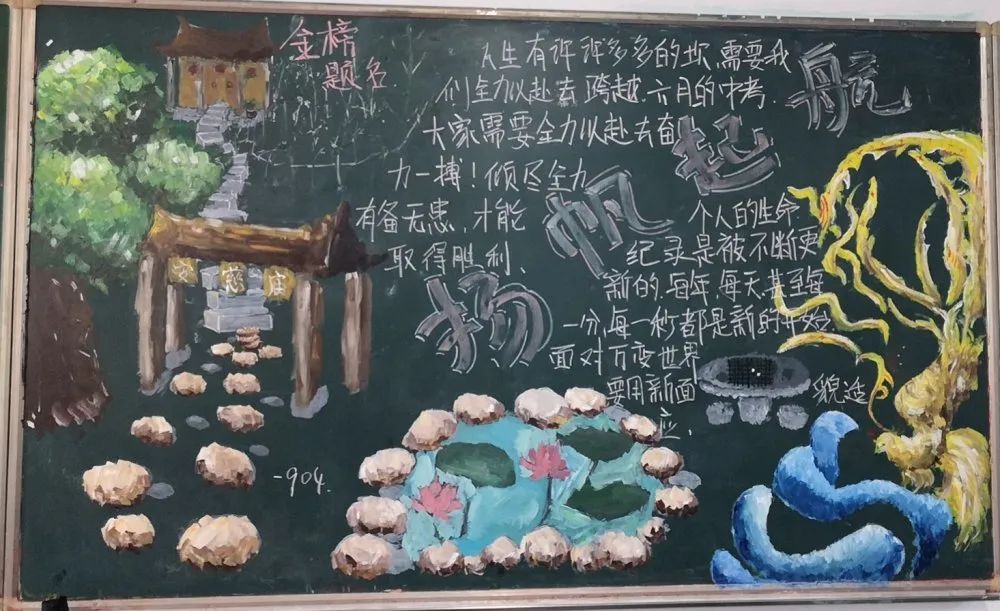 金榜
题名
人生有许许多多的坎,需要我
们全力以赴去跨越.六月的中考.
大家需要全力以赴去奋
力一搏!倾尽全力
有备无患,才能
取得胜利、
扬帆起航
个人的生命
纪录是被不断更
新的,每年,每天,甚至每
一分,每一秒都是新的开始
面对万变世界
要用新面貌适
应、
庙
-904.